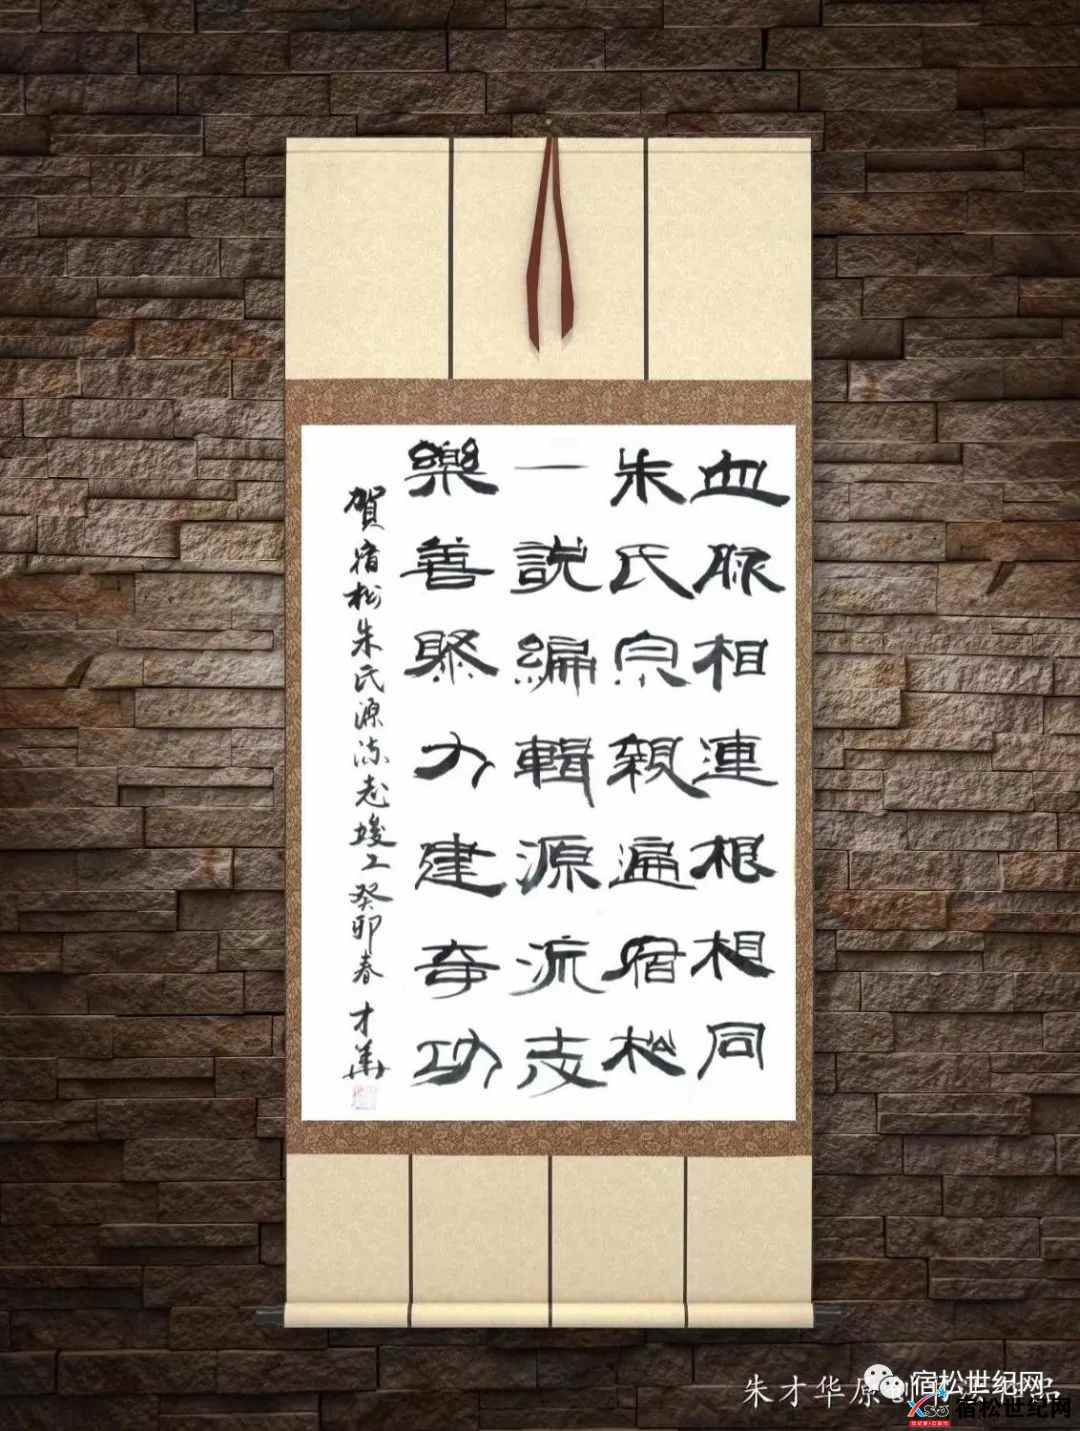 血脉相連根相同
朱氏宗親遍宿松
一說編輯源流志
樂善聚力建奇功
賀宿松朱氏源流志竣工癸卯春
才華
朱才华原创书法作品
宿松世纪网
宿松世纪网